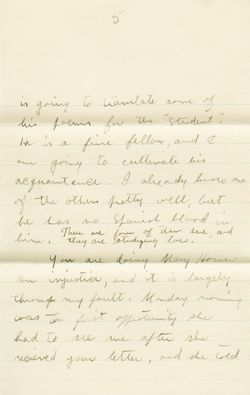 5
is going to translate some of
his poems for the "Student".
He is a fine fellow, and I
am going to cultivate his
acquantence. I already know one
of the others pretty well, but
he has no Spanish blood in
him. There are four of them here, and
they are studying law.
You are doing Mary Horner
an injustice, and it is largely
through my fault. Monday morning
was the first opportunity she
had to see me after she
recieved your letter, and she told